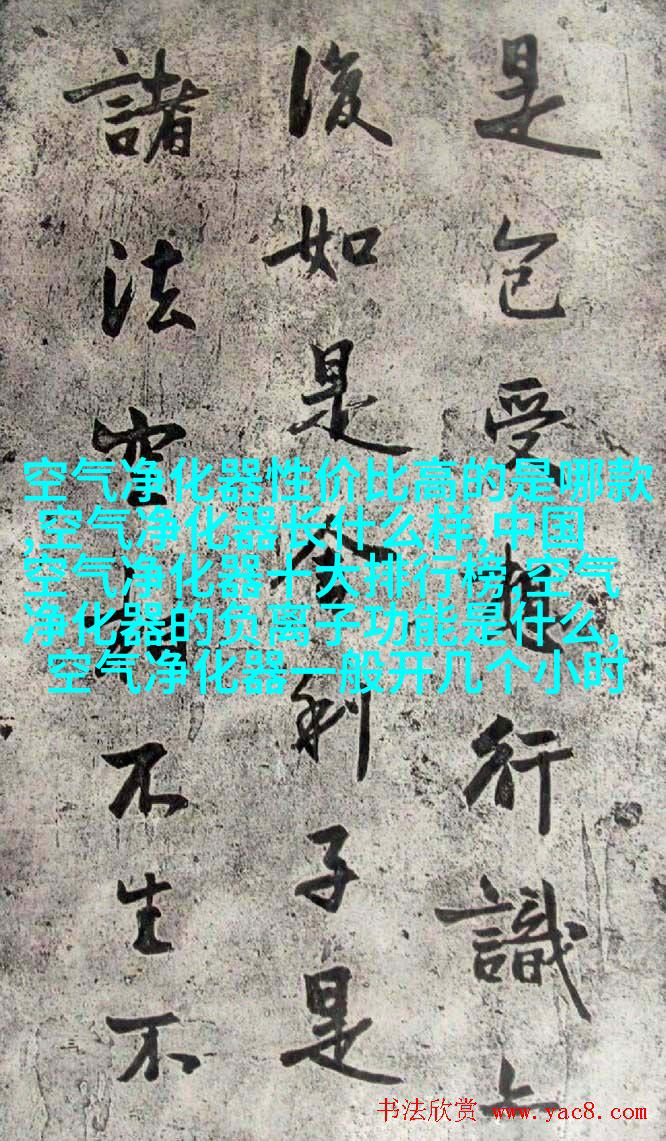 是色受想行識
復如是舍利子是
諸法空不生不
空气净化器性价比高的是哪款
,空气净化器长什么样,中国
空气净化器十大排行榜,空气
净化器的负离子功能是什么,
空气净化器一般开几个小时
书法欣赏 www.yac8.com